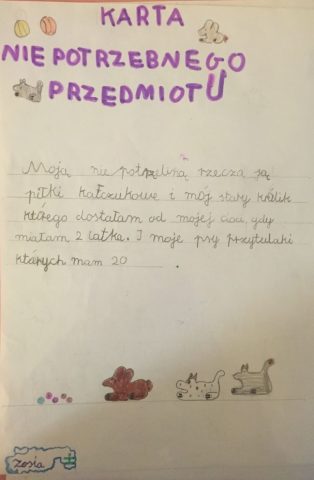 KARTA
NIE POTRZEBNEGO
PRZEDMIOTU
Moją nie potrzebną rzeczą są
piłki kałczukowe i mój stary królik
którego dostałam od mojej cioci, gdy
miałam 2 latka. I moje psy przytulaki
których mam 20
zosia